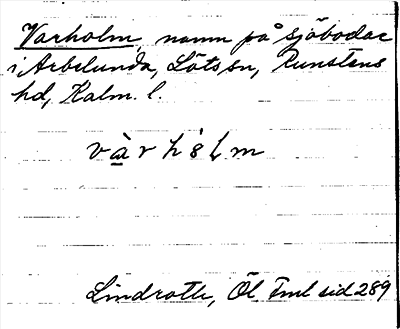 Varholm, namn på sjöbodar
i Arbelunda, Löts sn, Runstens
hd, Kalm. l.
vàrhòlm
Lindroth, Öl Fml sid 289